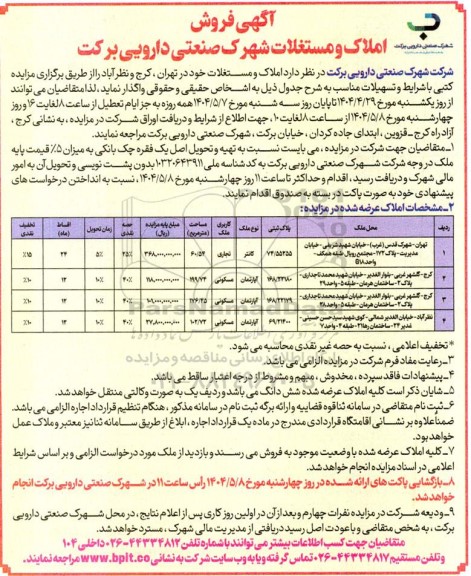 آگهی فروش
املاک و مستغلات شهرک صنعتی دارویی برکت
شهرک صنعتی دارویی برکت
شرکت شهرک صنعتی دارویی برکت در نظر دارد املاک و مستغلات خود در تهران ، کرج و نظرآباد را از طریق برگزاری مزایده
کتبی با شرایط و تسهیلات مناسب به شرح جدول ذیل به اشخاص حقیقی و حقوقی واگذار نماید ، لذا متقاضیان می توانند
از روز یکشنبه مورخ ۱۴۰۴/۴/۲۹ تا پایان روز سه شنبه مورخ ۱۴۰۴/۵/۷ همه روزه به جز ایام تعطیل از ساعت ۸ لغایت ۱۶ و روز
چهارشنبه مورخ ۱۴۰۴/۵/۸ از ساعت ۸ لغایت ۱۰ ، جهت اطلاع از شرایط و دریافت اوراق شرکت در مزایده ، به نشانی کرج ،
آزادراه کرج ـ قزوین ، ابتدای جاده کردان ، خیابان برکت ، شهرک صنعتی دارویی برکت مراجعه نمایند.
۱ـ متقاضیان جهت شرکت در مزایده ، می بایست نسبت به تهیه و تحویل اصل یک فقره چک بانکی به میزان ۵٪ قیمت پایه
ملک در وجه شرکت شهرک صنعتی دارویی برکت به کد شناسه ملی ۱۰۳۲۰۶۴۳۹۱۱ بدون پشت نویسی و تحویل آن به امور
مالی شهرک و دریافت رسید ، اقدام و حداکثر تا ساعت ۱۱ روز چهارشنبه مورخ ۱۴۰۴/۵/۸ ، نسبت به انداختن درخواست های
پیشنهادی خود به صورت پاکت در بسته به صندوق اقدام نمایند.
۲ـ مشخصات املاک عرضه شده در مزایده :
ردیف محل ملک پلاک ثبتی نوع ملک کاربری ملک مساحت (مترمربع) مبلغ پایه مزایده (ریال) حصه نقدی زمان تحویل اقساط (ماه) تخفیف نقدی
۱ تهران - شهرک قدس (غرب) - خیابان شهید شریفی - خیابان مدیریت - پلاک ۱۷۲ - مجتمع رویال - طبقه همکف - ۷۴/۵۵۴۵۵ تجاری ۶۰/۵۲ ۲۵٪ ۵٪ ۲۴ ۱۵٪
۲ کرج - گلشهر غربی - بلوار الغدیر - خیابان شهید محمد تاجداری - پلاک ۲ - ساختمان هرمان - طبقه ۵ - واحد ۲۹ آپارتمان مسکونی ۴۰٪ ۱۲ ۱۰٪
۳ کرج - گلشهر غربی - بلوار الغدیر - خیابان شهید محمد تاجداری - پلاک ۲ - ساختمان هرمان - طبقه ۵ - آپارتمان مسکونی ۴۰٪ ۱۲ ۱۰٪
۴ نظرآباد - خیابان الغدیر شمالی - کوی شهید سیدحسن حسینی - آپارتمان مسکونی ۴۰٪ ۱۲ ۱۰٪
*تخفیف اعلامی ، نسبت به حصه غیر نقدی محاسبه می شود.
۳ـ رعایت مفاد فرم شرکت در مزایده الزامی می باشد.
۴ـ پیشنهادات فاقد سپرده ، مخدوش ، مبهم و مشروط از درجه اعتبار ساقط می باشد.
۵ـ شایان ذکر است کلیه املاک عرضه شده شش دانگ می باشد و ردیف یک به صورت وکالتی منتقل خواهد شد.
۶ـ ثبت نام متقاضی در سامانه ثنا قوه قضاییه و ارائه برگه ثبت نام در سامانه مذکور ، هنگام تنظیم قرارداد اجاره الزامی می باشد.
ضمناً علاوه بر نشانی اقامتگاه قراردادی مندرج در ماده یک قرارداد اجاره ، ابلاغ از طریق سامانه ثنا نیز معتبر و ملاک عمل
خواهد بود.
۷ـ کلیه املاک عرضه شده با وضعیت موجود به فروش می رسند و بازدید از ملک مورد درخواست الزامی و بر اساس شرایط
اعلامی در اسناد مزایده انجام خواهد شد.
۸ـ بازگشایی پاکت های ارائه شده در روز چهارشنبه مورخ ۱۴۰۴/۵/۸ رأس ساعت ۱۱ در شهرک صنعتی دارویی برکت انجام
خواهد شد.
۹ـ ودیعه شرکت در مزایده نفرات چهارم و بعد از آن در اولین روز کاری پس از اعلام نتایج ، در محل شهرک صنعتی دارویی
برکت ، به شخص متقاضی و با عودت اصل رسید دریافتی از مدیریت مالی شهرک ، مسترد خواهد شد.
متقاضیان جهت کسب اطلاعات بیشتر می توانند با شماره تلفن ۴۴۳۳۴۸۱۲-۰۲۶ داخلی ۱۰۴
و تلفن مستقیم ۴۴۳۳۴۸۱۷-۰۲۶ تماس گرفته و یا به وب سایت شرکت به نشانی www.bplt.co مراجعه نمایند.